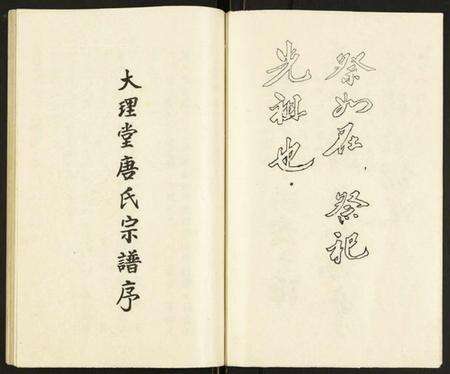 祭如在 祭祀
光祖也
大理堂唐氏宗譜序